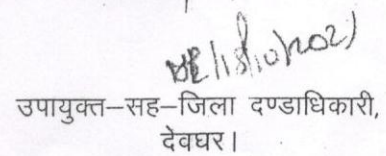 18/10/2021
उपायुक्त–सह–जिला दण्डाधिकारी,
देवघर।